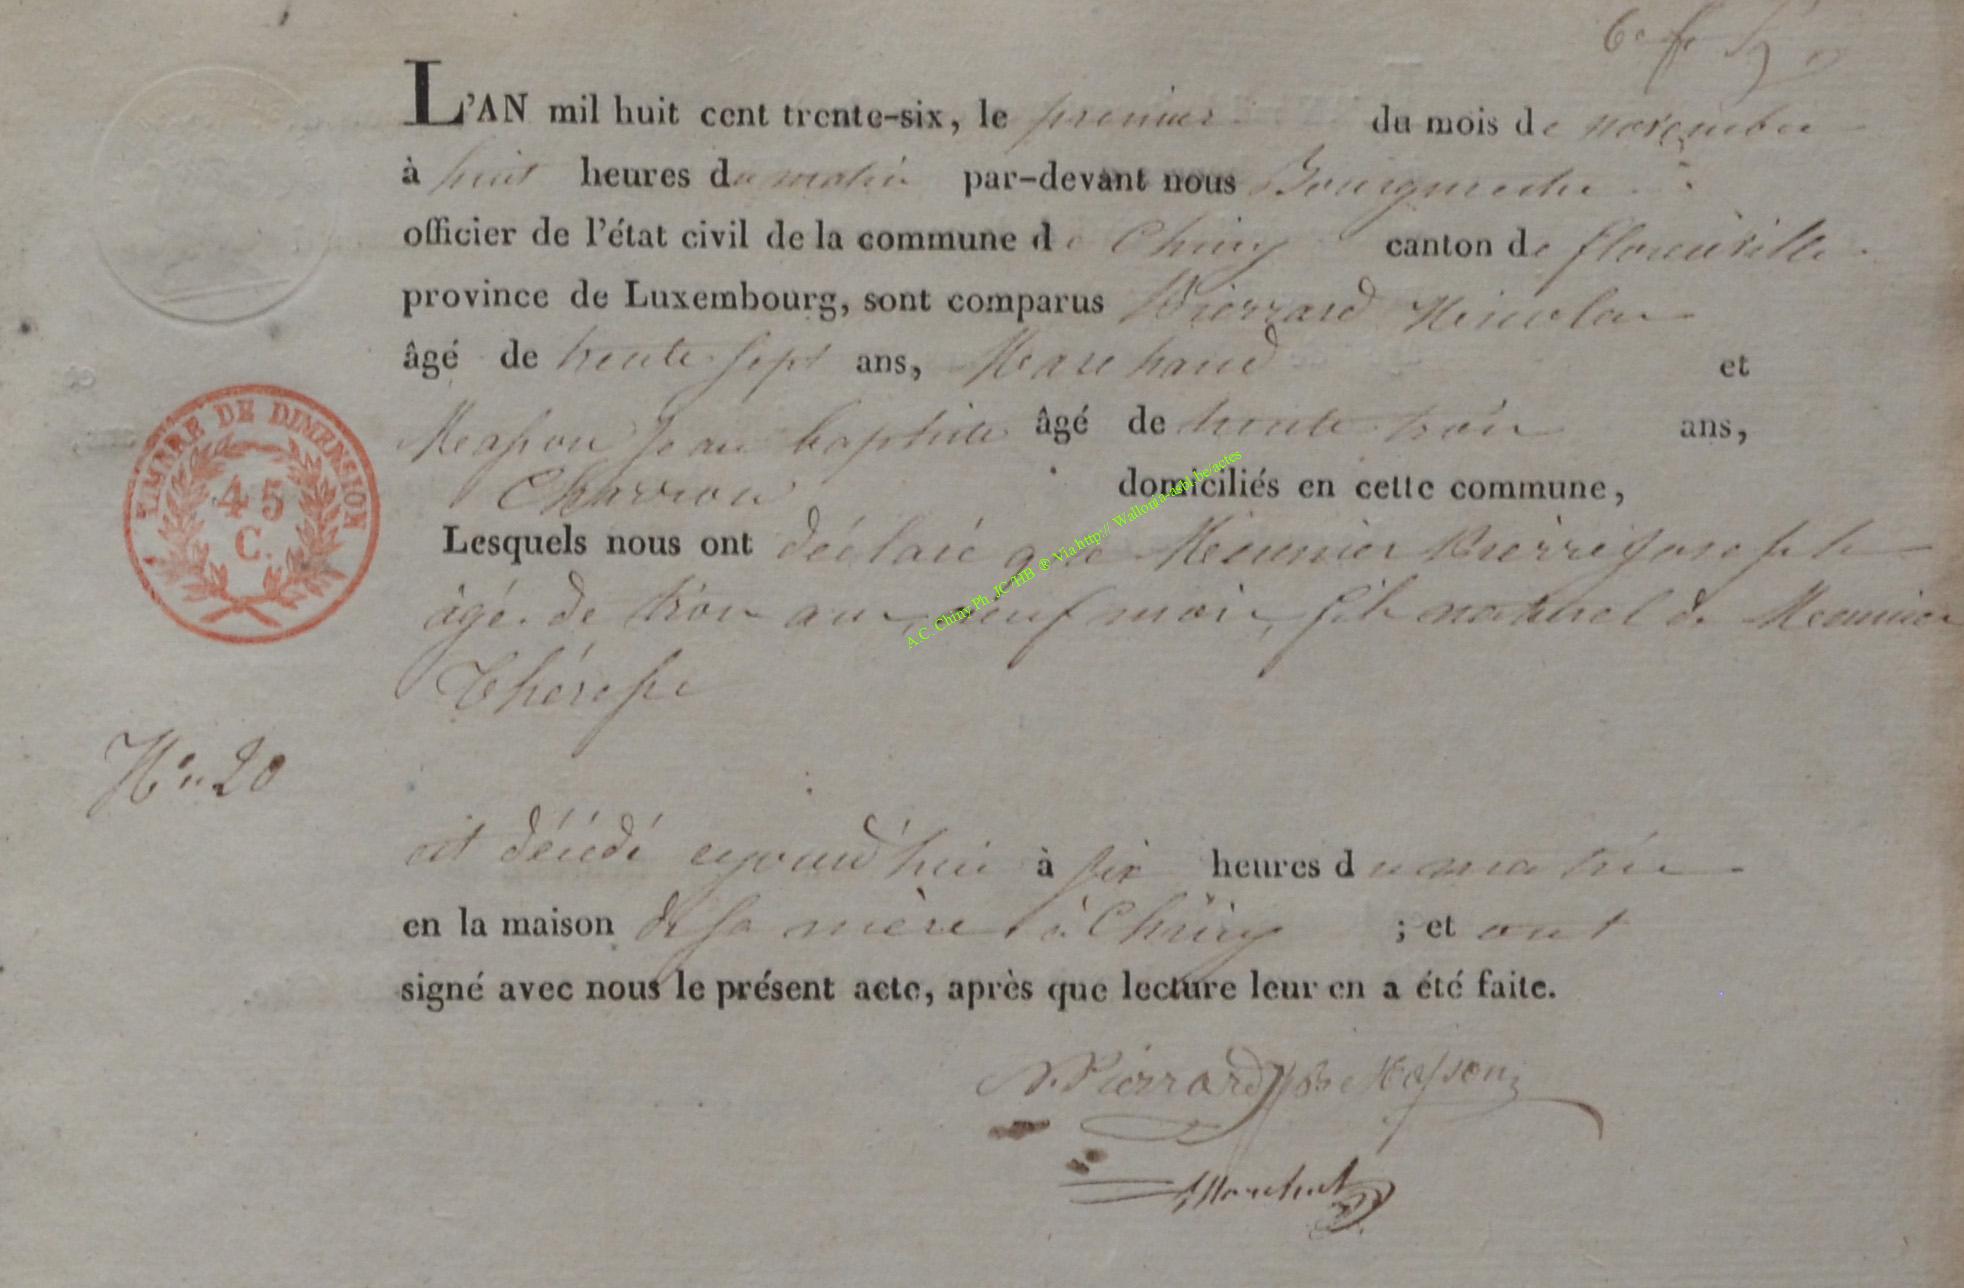 L'AN mil huit cent trente-six, le premier du mois de novembre
à huit heures du matin par-devant nous Bourgmestre
officier de l'état civil de la commune de Chiny canton de florenville
province de Luxembourg, sont comparus Pierrard Nicolas
âgé de trente sept ans, Marchand et
Masson Jean baptiste âgé de trente trois ans,
Charron domiciliés en cette commune,
Lesquels nous ont déclaré que Meunier Pierre Joseph
âgé de trois ans neuf mois, fils naturel de Meunier
Thérèse
TIMBRE DE DIMENSION
45
C.
No 20
est décédé aujourd'hui à six heures du matin
en la maison de sa mère à Chiny ; et ont
signé avec nous le présent acte, après que lecture leur en a été faite.
N Pierrard JB Masson
A.C. Chiny Ph. JC HB ® Via http:// Wallonia-asbl.be/actes